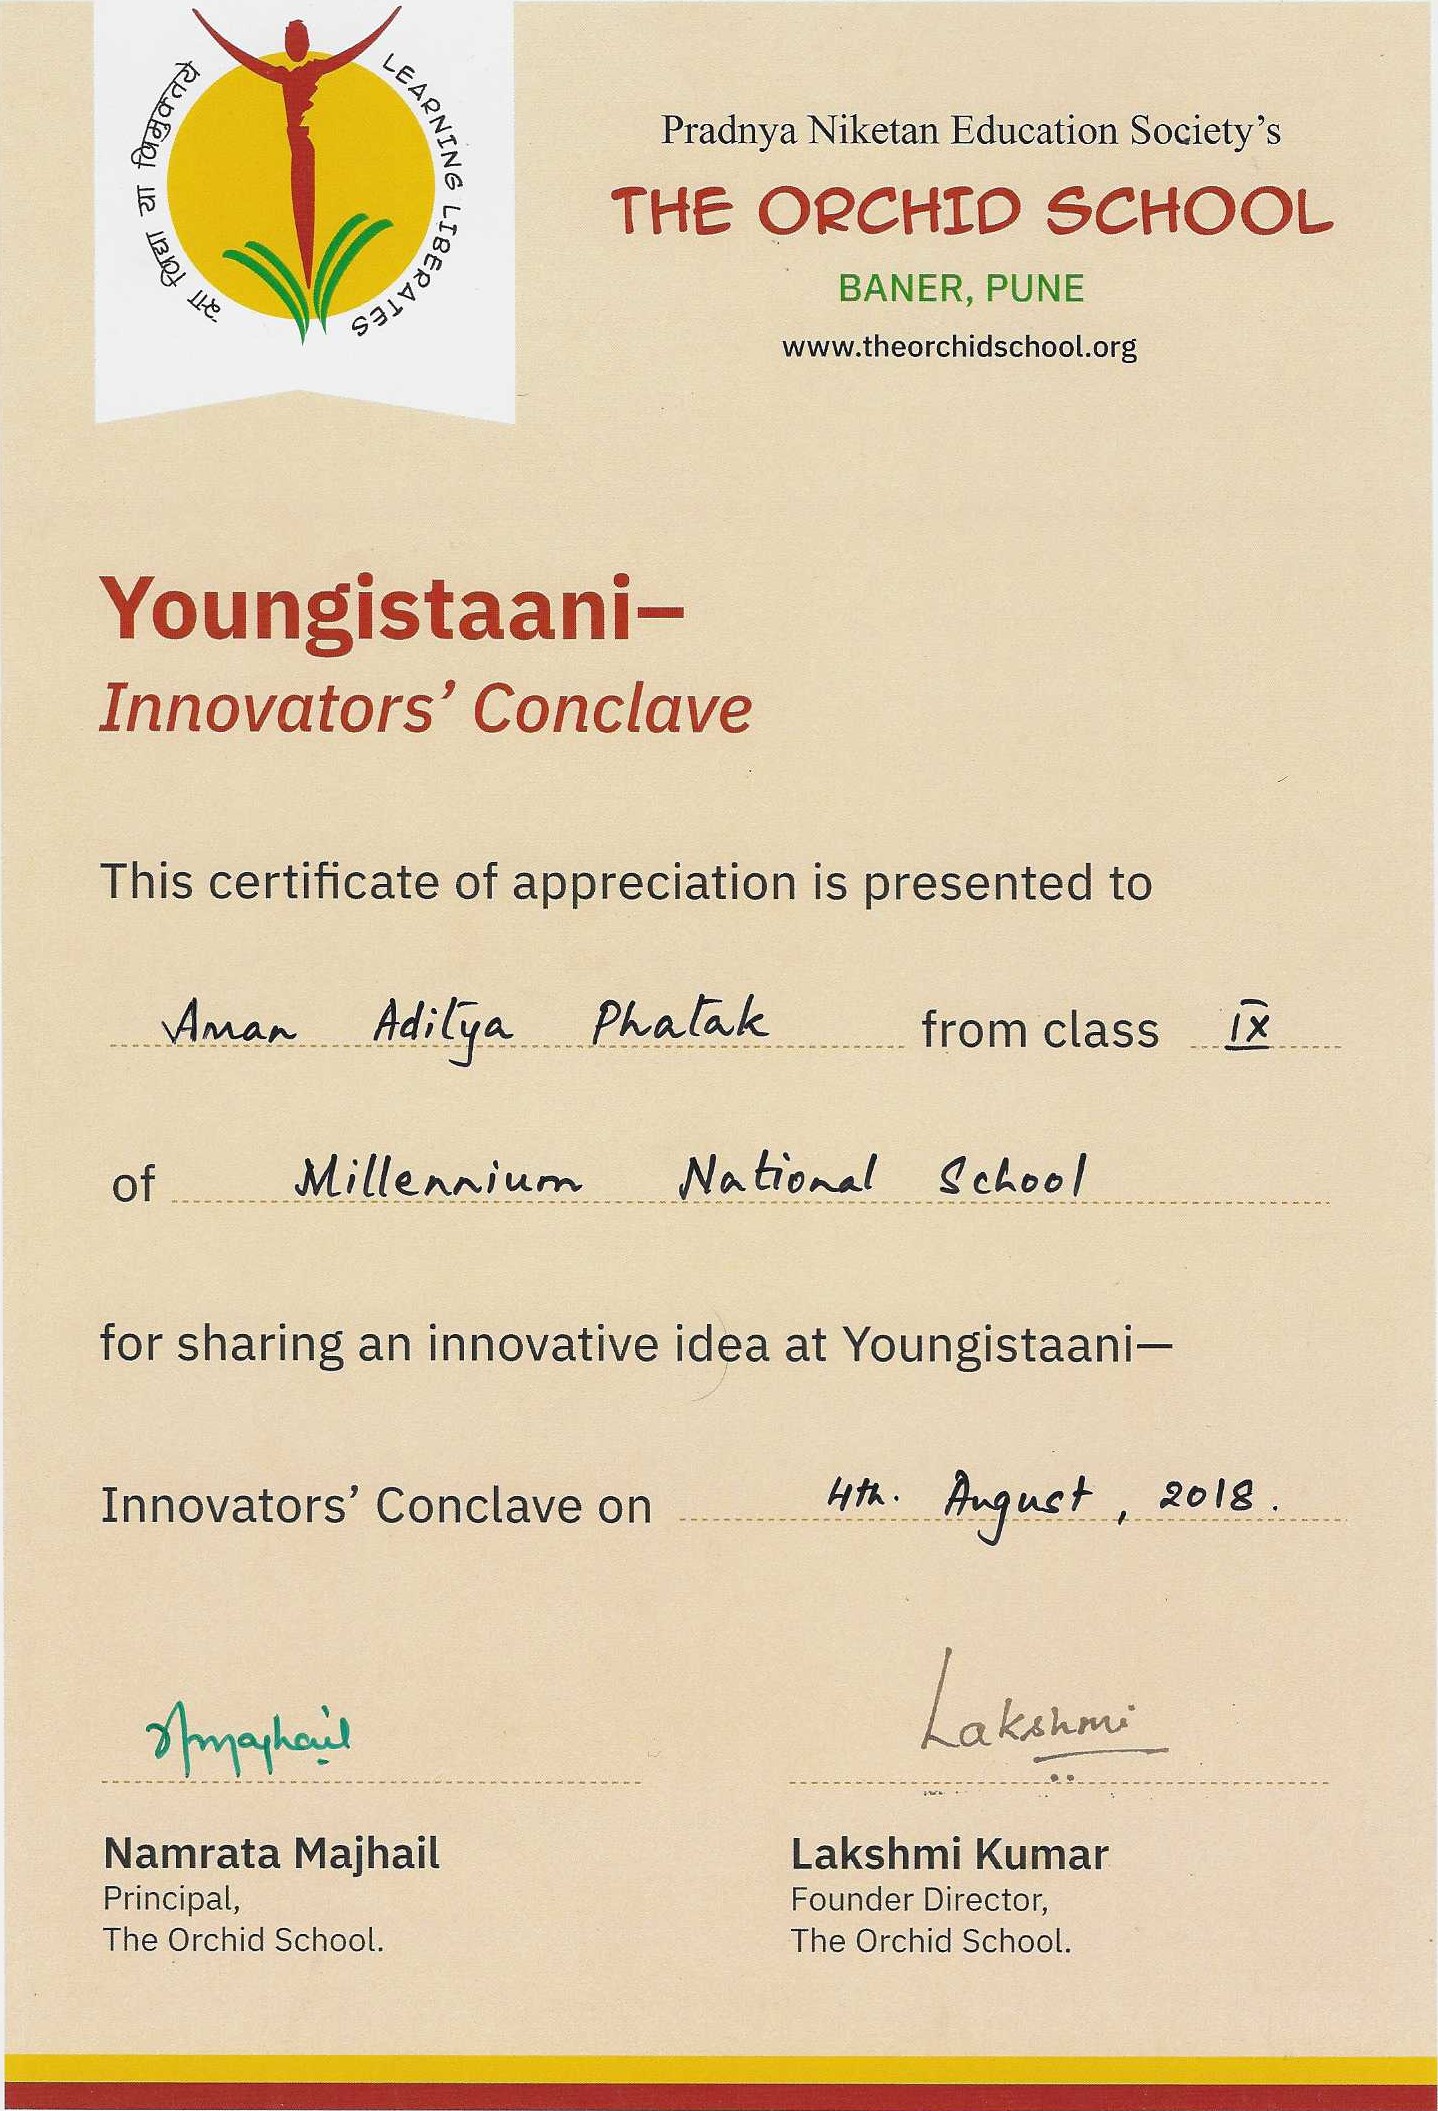 सा विद्या या विमुक्तये
LEARNING LIBERATES
Pradnya Niketan Education Society's
THE ORCHID SCHOOL
BANER, PUNE
www.theorchidschool.org
Youngistaani–
Innovators' Conclave
This certificate of appreciation is presented to
Aman Aditya Phatak from class IX
of Millennium National School
for sharing an innovative idea at Youngistaani—
Innovators' Conclave on 4th. August, 2018.
Nmajhail Lakshmi
Namrata Majhail Lakshmi Kumar
Principal, Founder Director,
The Orchid School. The Orchid School.